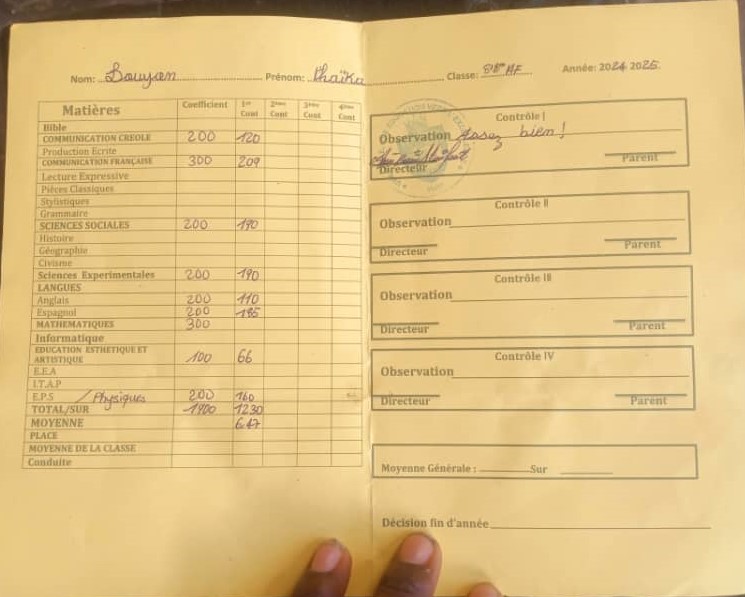 Nom: Douyon Prénom: Thaïka Classe: 8ème AF Année: 2024 2025
Matières Coefficient 1er Cont 2ème Cont 3ème Cont 4ème Cont
Bible
COMMUNICATION CREOLE 200 120
Production Ecrite
COMMUNICATION FRANÇAISE 300 209
Lecture Expressive
Pièces Classiques
Stylistiques
Grammaire
SCIENCES SOCIALES 200 190
Histoire
Géographie
Civisme
Sciences Experimentales 200 190
LANGUES
Anglais 200 110
Espagnol 200 185
MATHEMATIQUES 300
Informatique
EDUCATION ESTHETIQUE ET ARTISTIQUE 100 66
E.E.A
I.T.A.P
E.P.S / Physiques 200 160
TOTAL/SUR 1900 1230
MOYENNE 6.47
PLACE
MOYENNE DE LA CLASSE
Conduite
Contrôle I
Observation Assez bien!
Directeur Parent
Contrôle II
Observation
Directeur Parent
Contrôle III
Observation
Directeur Parent
Contrôle IV
Observation
Directeur Parent
Moyenne Générale : Sur
Décision fin d'année